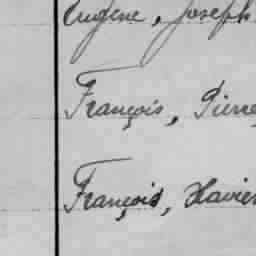 Eugène, Joseph
François, Pierre
François, Xavier